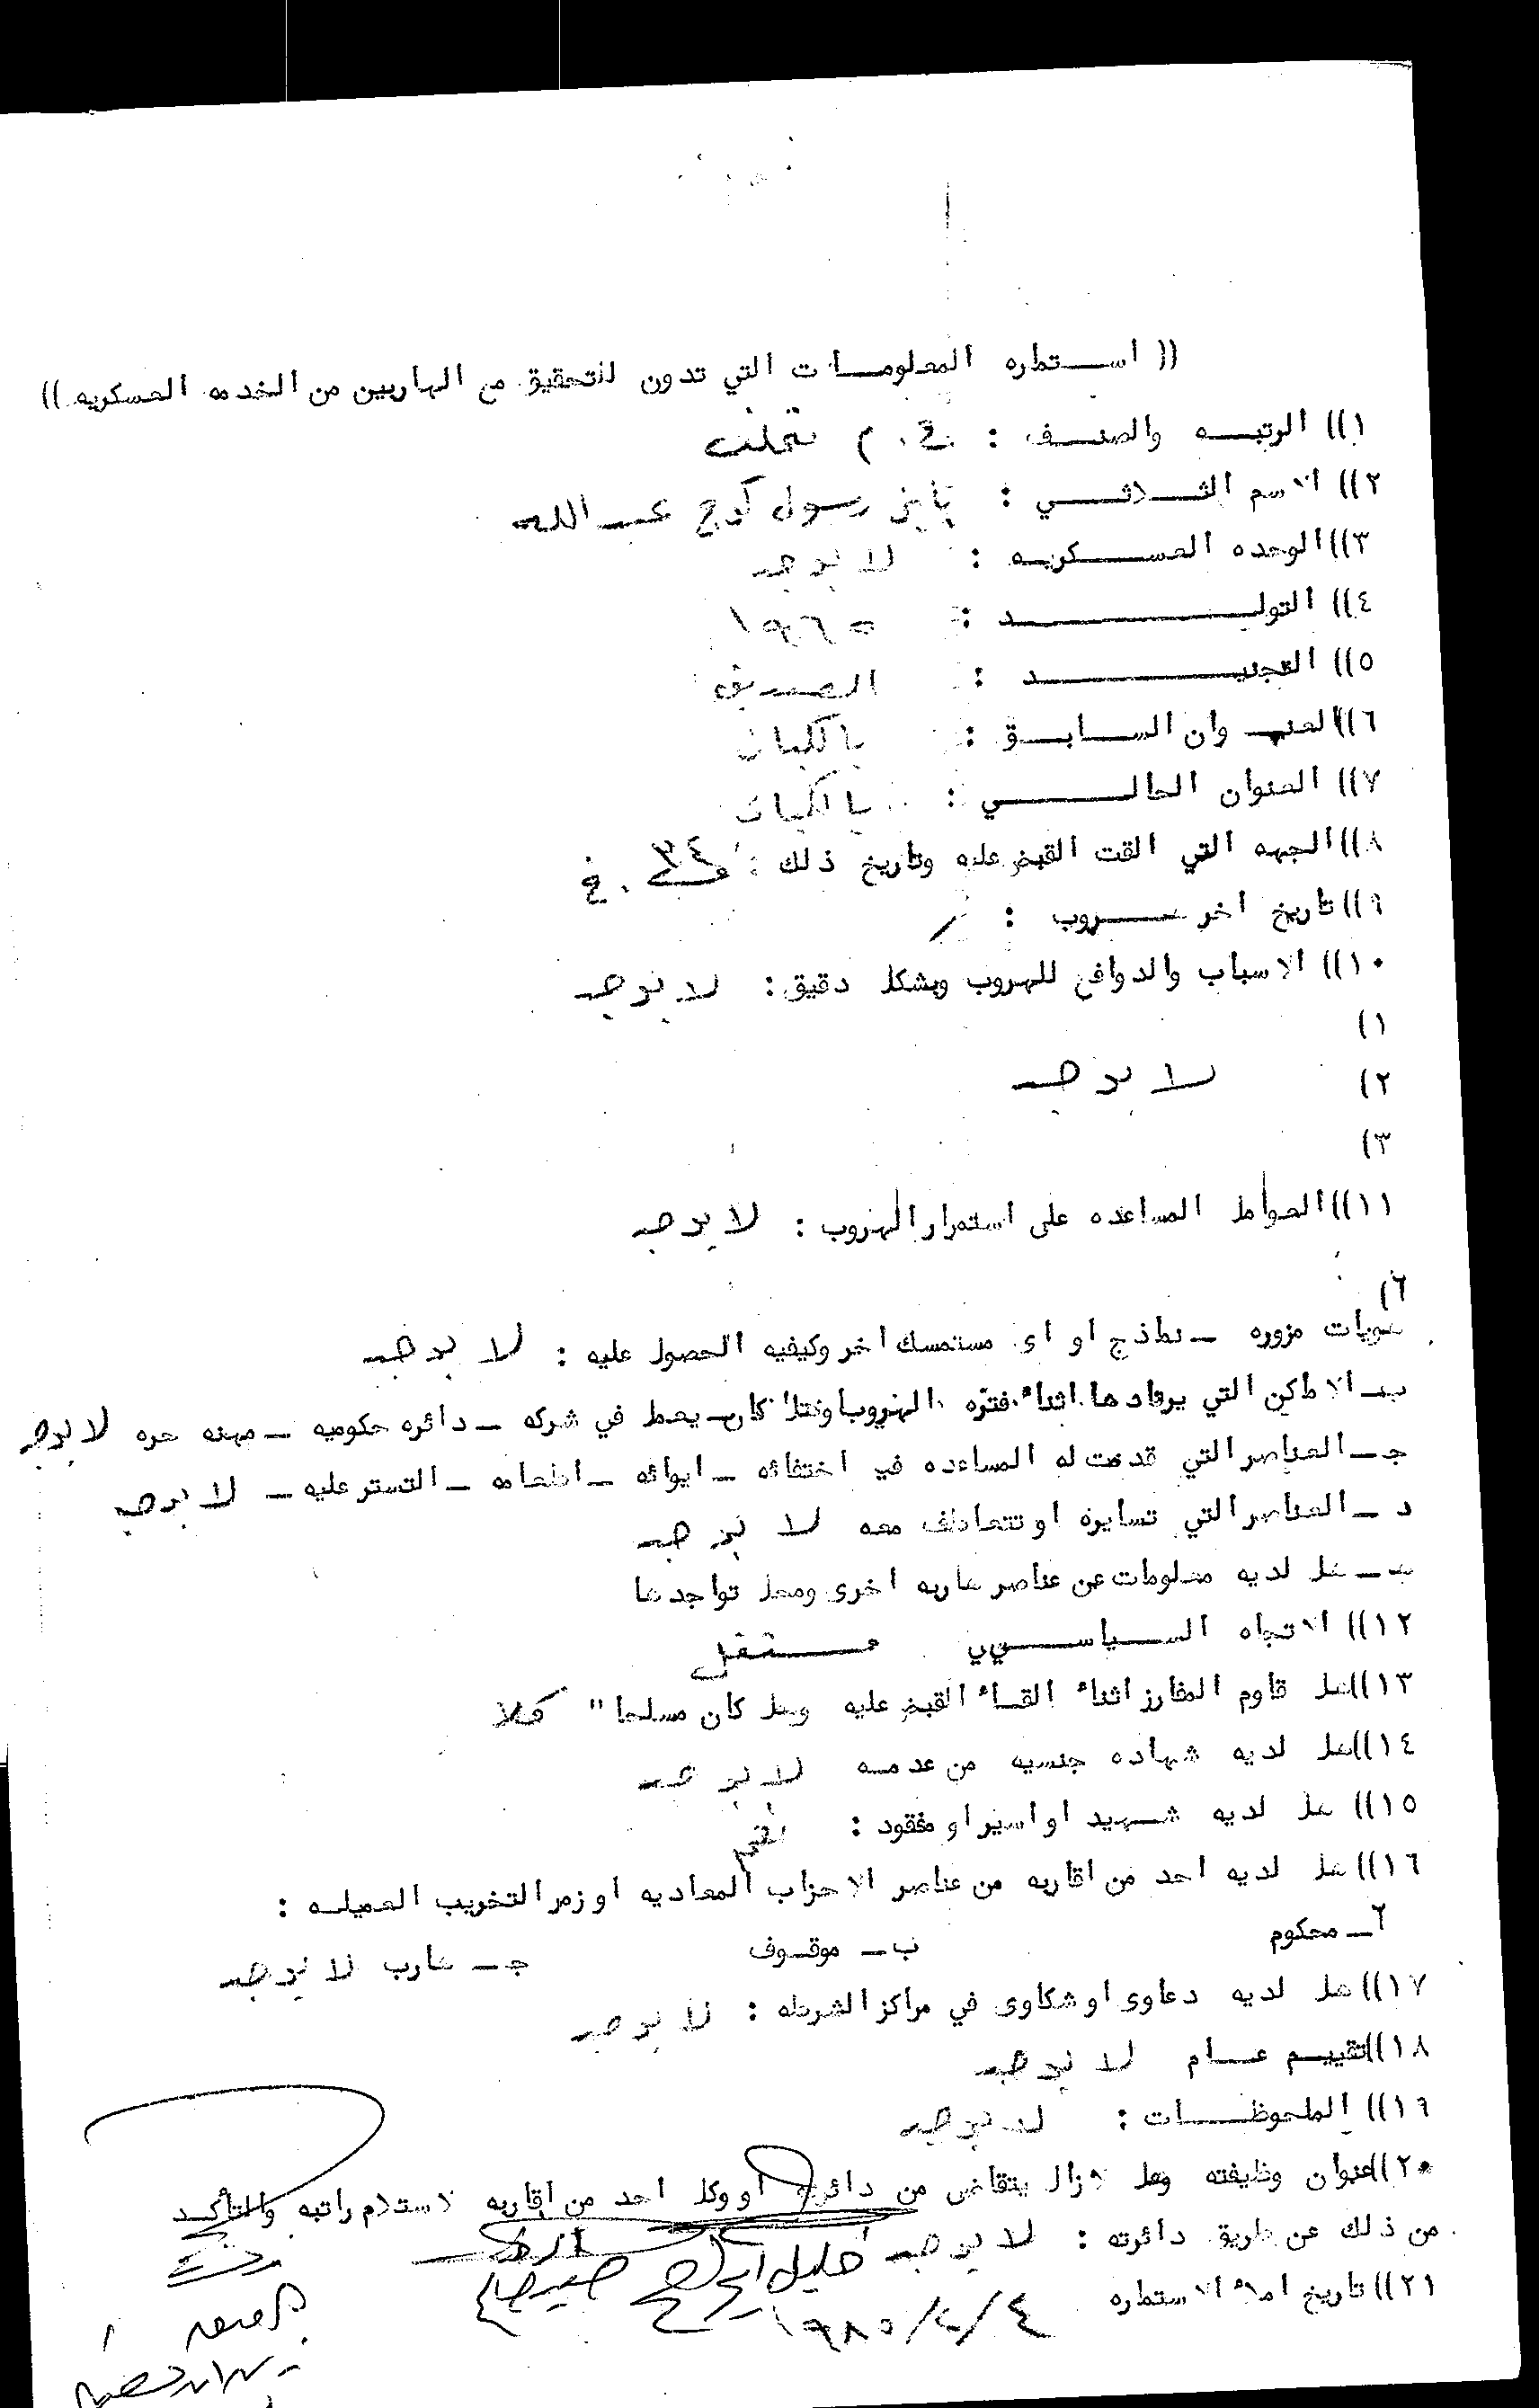 (( استماره المعلومات التي تدون للتحقيق مع الهاربين من الخدمه العسكريه ))
١)) الرتبه والصنف : ج . م تخلف
٢)) الاسم الثلاثي : رسول عبدالله
٣)) الوحده العسكريه : لا يوجد
٤)) التولد : ١٩٦٥
٥)) التجنيد :
٦)) العنوان السابق :
٧)) العنوان الحالي :
٨)) الجهه التي القت القبض عليه وتاريخ ذلك :
٩)) تاريخ اخر هروب : /
١٠)) الاسباب والدوافع للهروب وبشكل دقيق : لا يوجد
١)
٢) لا يوجد
٣)
١١)) العوامل المساعده على استمرار الهروب : لا يوجد
٦)
هويات مزوره – نماذج او اى مستمسك اخر وكيفيه الحصول عليه : لا يوجد
ب – الاماكن التي يرتادها اثناء فتره الهروب كان يعمل في شركه – دائره حكوميه – مهنه حره لا يوجد
ج – العناصر التي قدمت له المساعده في اختفائه – ايوائه – اطعامه – التستر عليه – لا يوجد
د – العناصر التي تسايره او تتعاطف معه لا يوجد
هـ – هل لديه معلومات عن عناصر هاربه اخرى ومحل تواجدها
١٢)) الاتجاه السياسي مستقل
١٣)) هل قاوم المفارز اثناء القاء القبض عليه وهل كان مسلحا" كلا
١٤)) هل لديه شهاده جنسيه من عدمه لا يوجد
١٥)) هل لديه شهيد او اسير او مفقود : نعم
١٦)) هل لديه احد من اقاربه من عناصر الاحزاب المعاديه او زمر التخريب العميله :
٦ – محكوم ب – موقوف ج – هارب لا يوجد
١٧)) هل لديه دعاوى او شكاوى في مراكز الشرطه : لا يوجد
١٨)) تقييم عام لا يوجد
١٩)) الملحوظات : لا يوجد
٢٠)) عنوان وظيفته وهل لازال يتقاضى من دائرته او وكل احد من اقاربه لاستلام راتبه والتأكد
من ذلك عن طريق دائرته : لا يوجد
٢١)) تاريخ املاء الاستماره